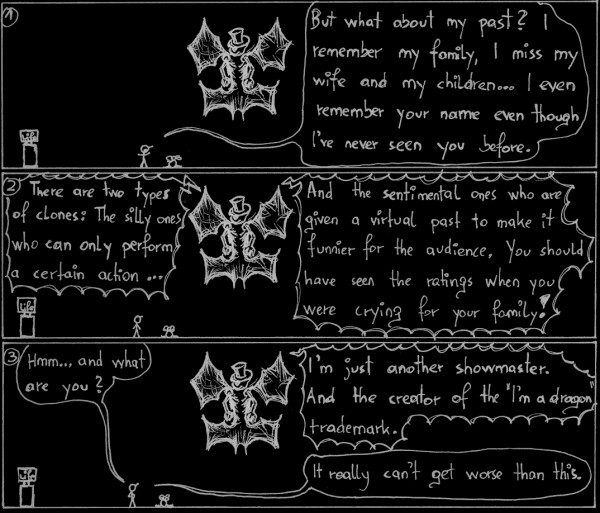 1
But what about my past? I
remember my family, I miss my
wife and my children... I even
remember your name even though
I've never seen you before.
Life
2
There are two types
of clones: The silly ones
who can only perform
a certain action ...
And the sentimental ones who are
given a virtual past to make it
funnier for the audience. You should
have seen the ratings when you
were crying for your family!
Life
3
Hmm... and what
are you?
I'm just another showmaster.
And the creator of the "I'm a dragon"
trademark.
It really can't get worse than this.
Life